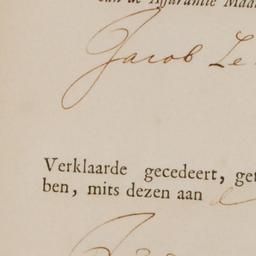 van de Assurantie Maa
Jacob Le
Verklaarde gecedeert, get
ben, mits dezen aan